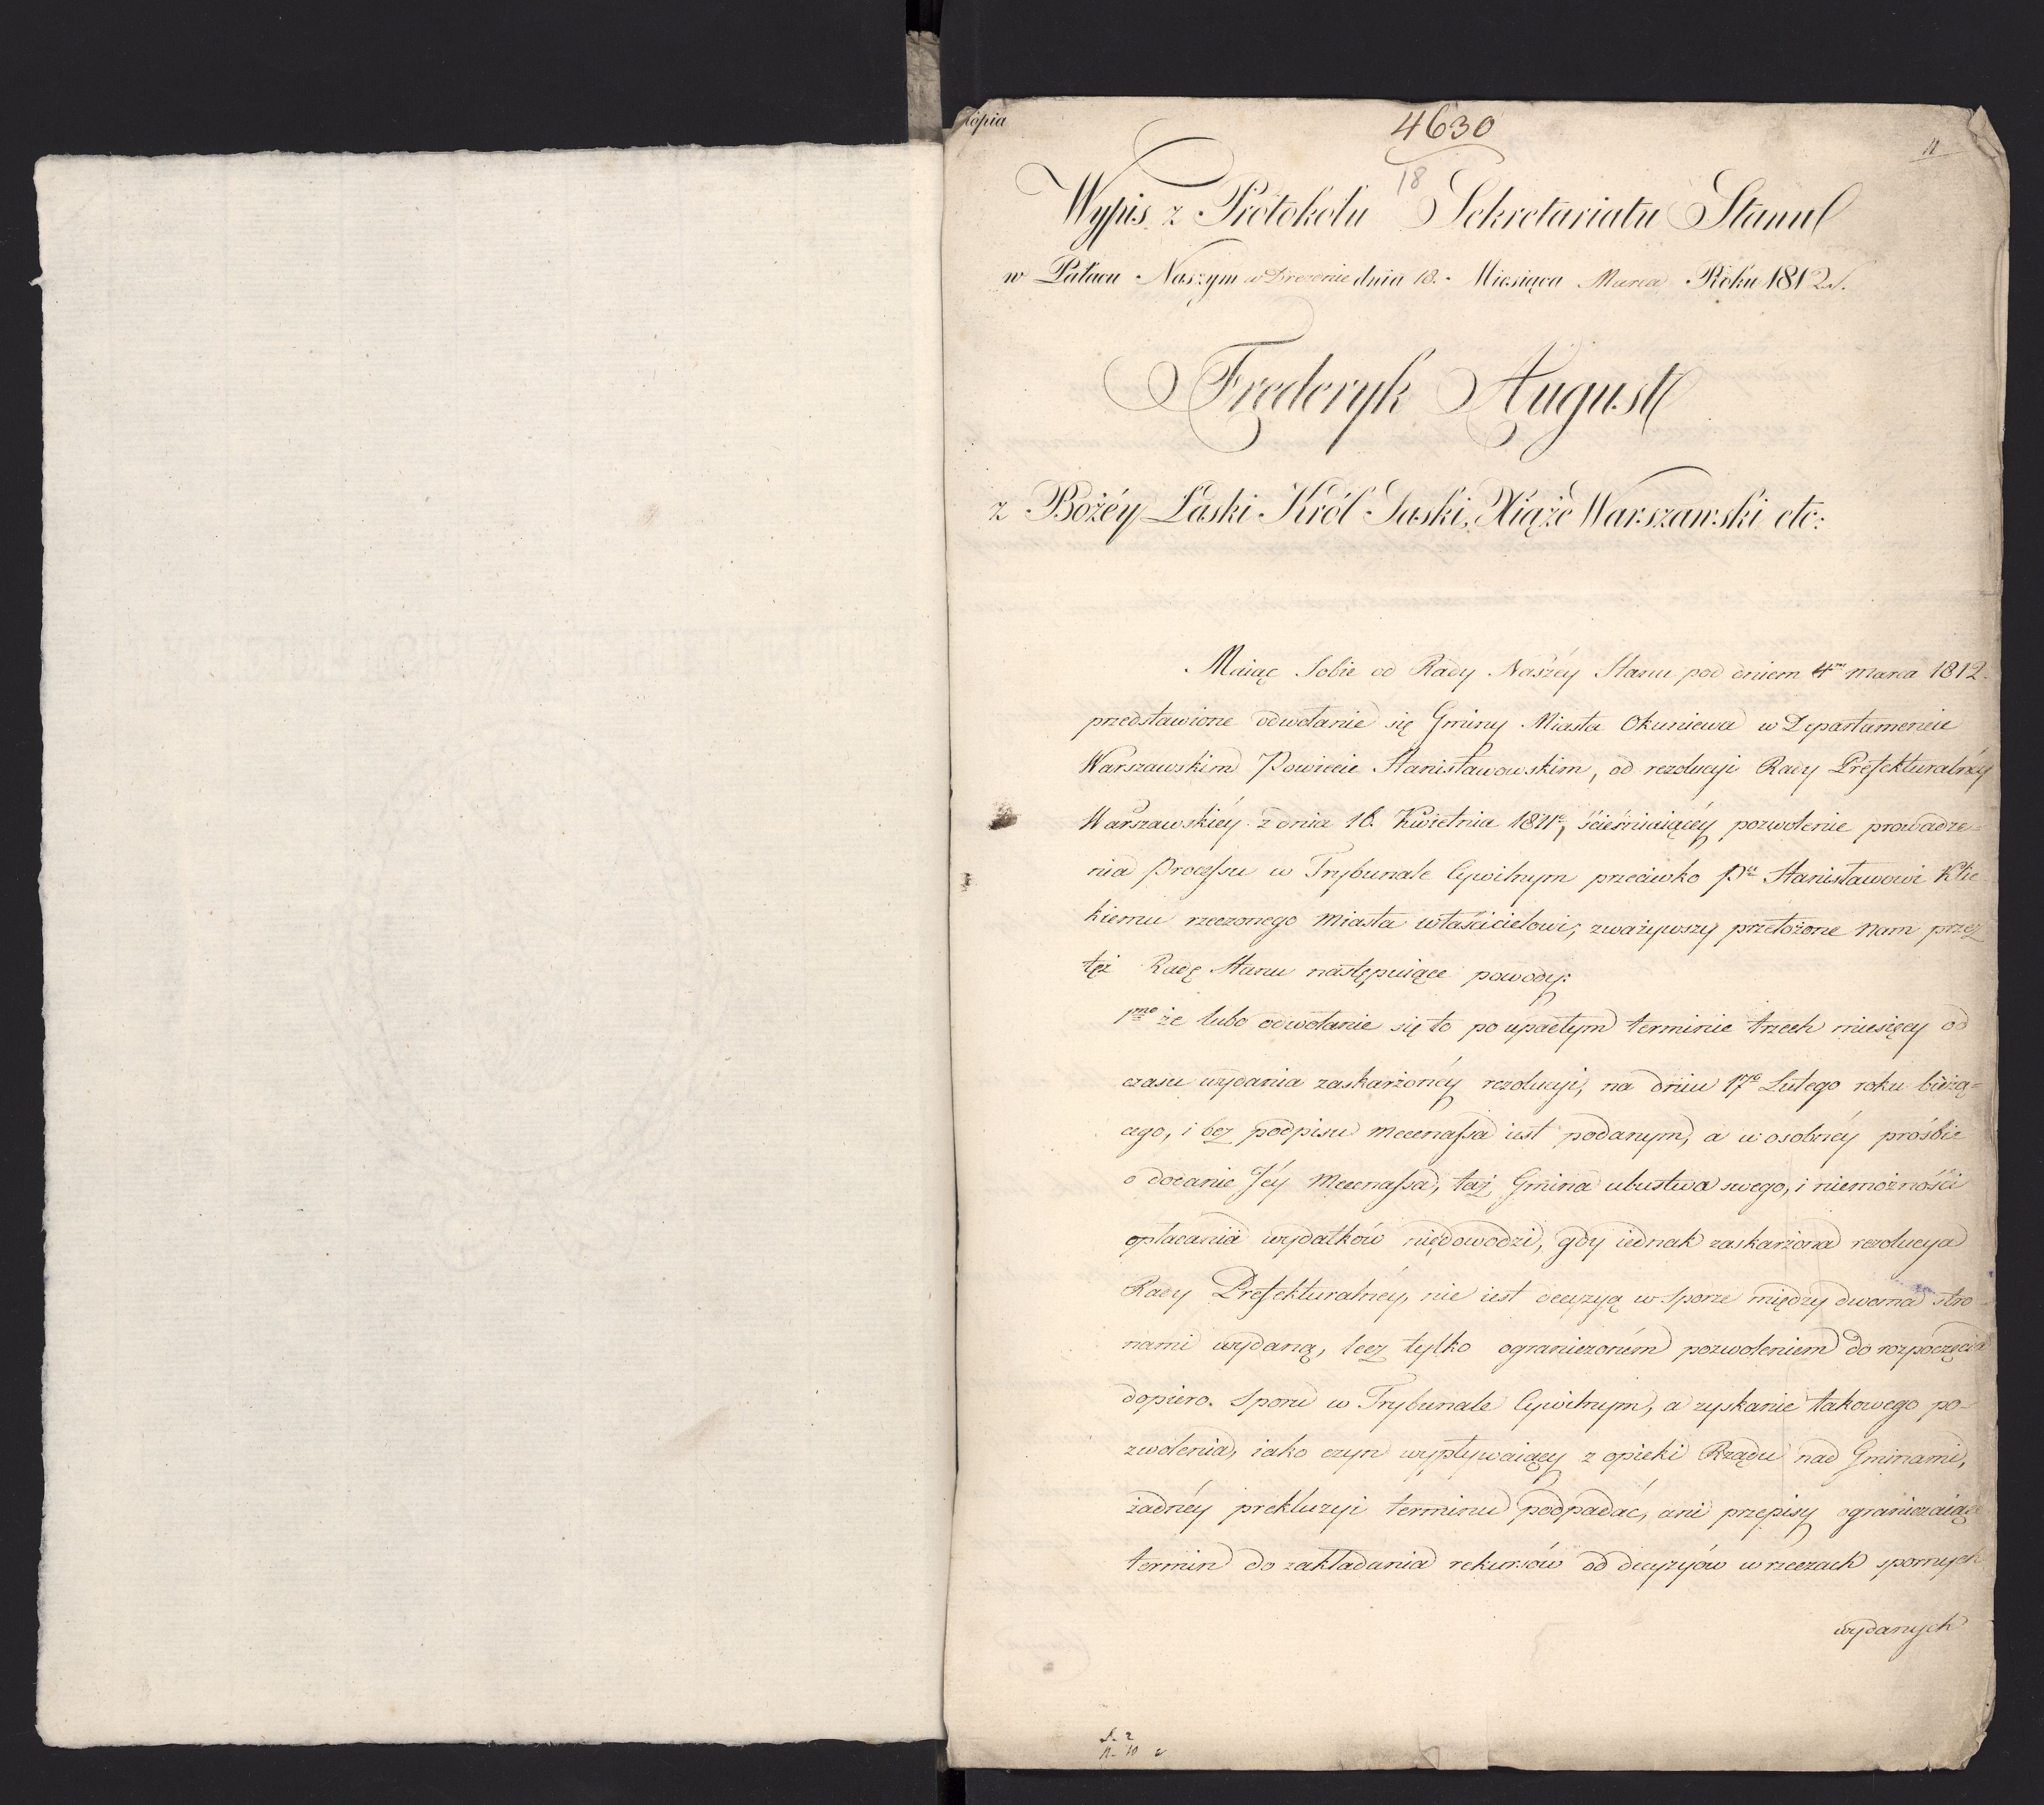 Kopia
4630
18
11
Wypis z Protokołu Sekretariatu Stanu
w Pałacu Naszym w Dreźnie dnia 18. Miesiąca Marca Roku 1812.
Frederyk August
z Bożéy Łaski Król Saski, Xiąże Warszawski etc:
Maiąc Sobie od Rady Naszéy Stanu pod dniem 4m marca 1812.
przedstawione odwołanie się Gminy Miasta Okuniewa w Departamencie
Warszawskim Powiecie Stanisławowskim, od rezolucyi Rady Prefekturalnéy
Warszawskiéy z dnia 16. Kwietnia 1811o, ścieśniaiącéy pozwolenie prowadze=
nia Processu w Trybunale Cywilnym przeciwko Pu Stanisławowi Klic-
kiemu rzeczonego miasta właścicielowi, zważywszy przełożone Nam przez
też Radę Stanu następuiące powody:
1mo że lubo odwołanie się to po upłetym terminie trzech miesięcy od
czasu wydania zaskarżonéy rezolucyi, na dniu 17o Lutego roku bieżą=
cego, i bez podpisu Mecenassa iest podanym, a w osobnéy prośbie
o dodanie Jéy Mecenassa, taż Gmina ubustwa swego, i niemożności
opłacania wydatków niedowodzi, gdy iednak zaskarżona rezolucya
Rady Prefekturalnéy, nie iest decyzyą w Sporze między dwoma stro-
nami wydaną, lecz tylko ograniczoném pozwoleniem do rozpoczęcia
dopiero Sporu w Trybunale Cywilnym, a zyskanie takowego po-
zwolenia, iako czyn wypływaiący z opieki Rządu nad Gminami,
żadnéy prekluzyi terminu podpadać, ani przepisy ograniczaiące
termin do zakładania rekursów od decyzyów w rzeczach spornych
wydanych